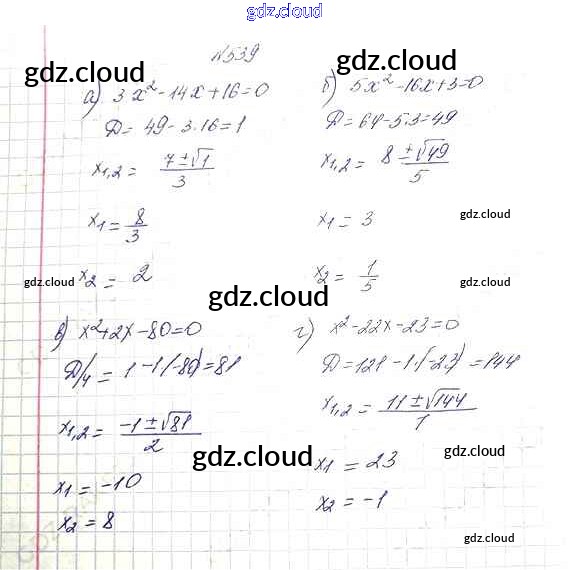 gdz.cloud
N539
gdz.cloud
gdz.cloud
а) 3x² - 14x + 16 = 0
Д = 49 - 3.16 = 1
x1,2 = (7 ± √1)/3
x1 = 8/3
x2 = 2
б) 5x² - 16x + 3 = 0
Д = 64 - 5.3 = 49
x1,2 = (8 ± √49)/5
x1 = 3
x2 = 1/5
gdz.cloud
gdz.cloud
gdz.cloud
gdz.cloud
в) x² + 2x - 80 = 0
Д/4 = 1 - 1(-80) = 81
x1,2 = (-1 ± √81)/2
x1 = -10
x2 = 8
г) x² - 22x - 23 = 0
Д = 121 - 1·(-23) = 144
x1,2 = (11 ± √144)/1
x1 = 23
x2 = -1
gdz.cloud
gdz.cloud
gdz.cloud
gdz.cloud